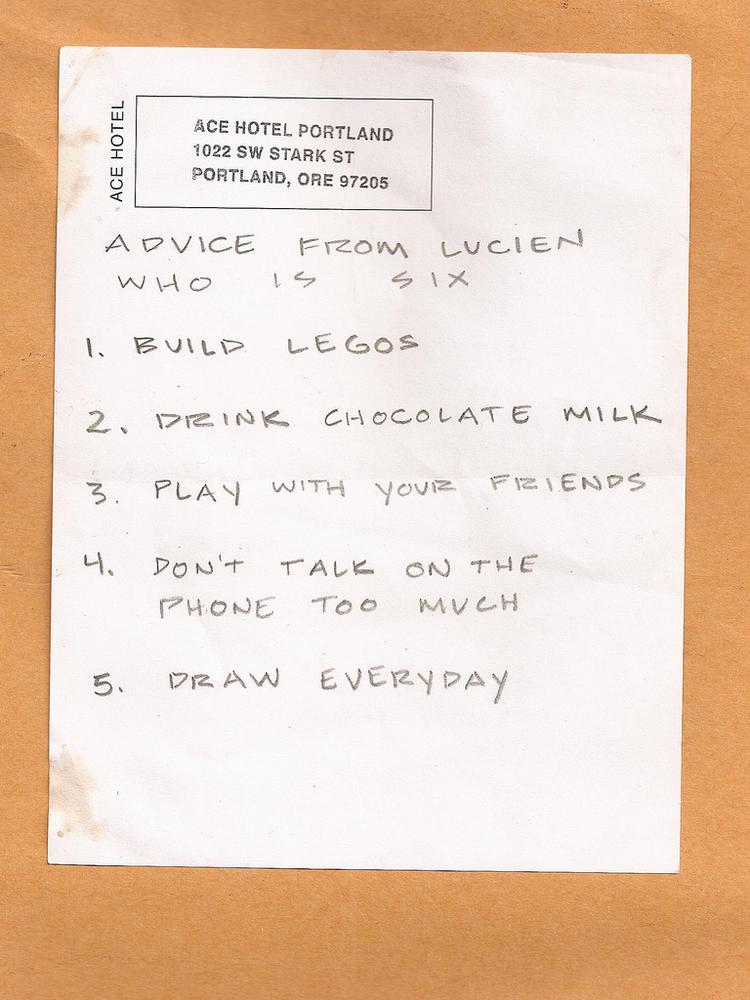 ACE HOTEL
ACE HOTEL PORTLAND
1022 SW STARK ST
PORTLAND, ORE 97205
ADVICE FROM LUCIEN
WHO IS SIX
1. BUILD LEGOS
2. DRINK CHOCOLATE MILK
3. PLAY WITH YOUR FRIENDS
4. DON'T TALK ON THE
PHONE TOO MUCH
5. DRAW EVERYDAY